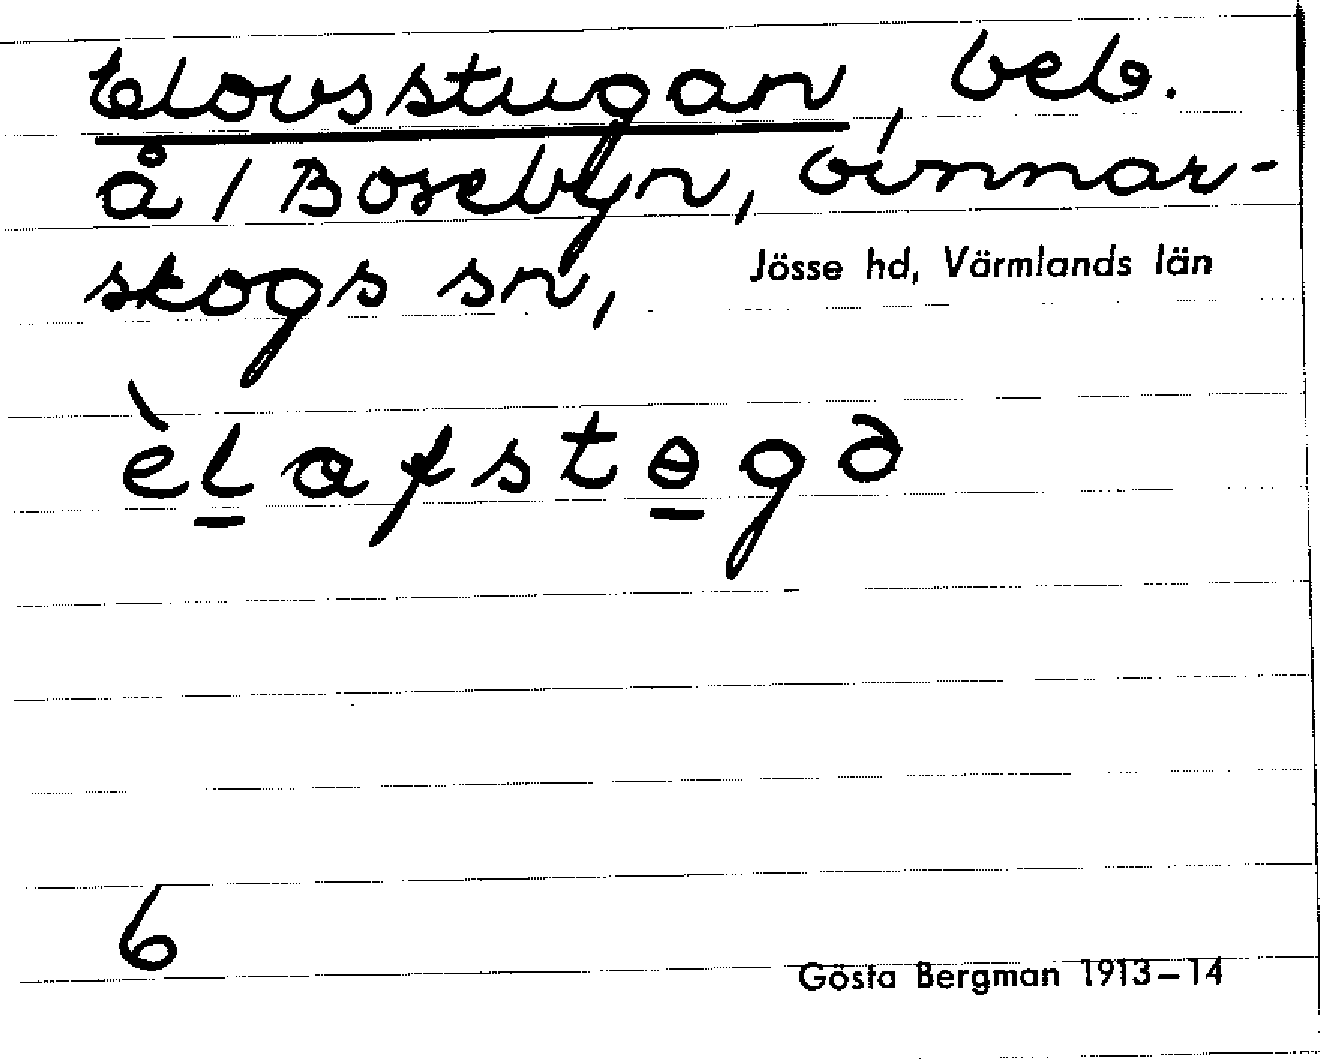 Elovsstugan, beb.
å / Bosebyn, Gunnar-
skogs sn, Jösse hd, Värmlands län
èlafstɵgə
6
Gösta Bergman 1913–14